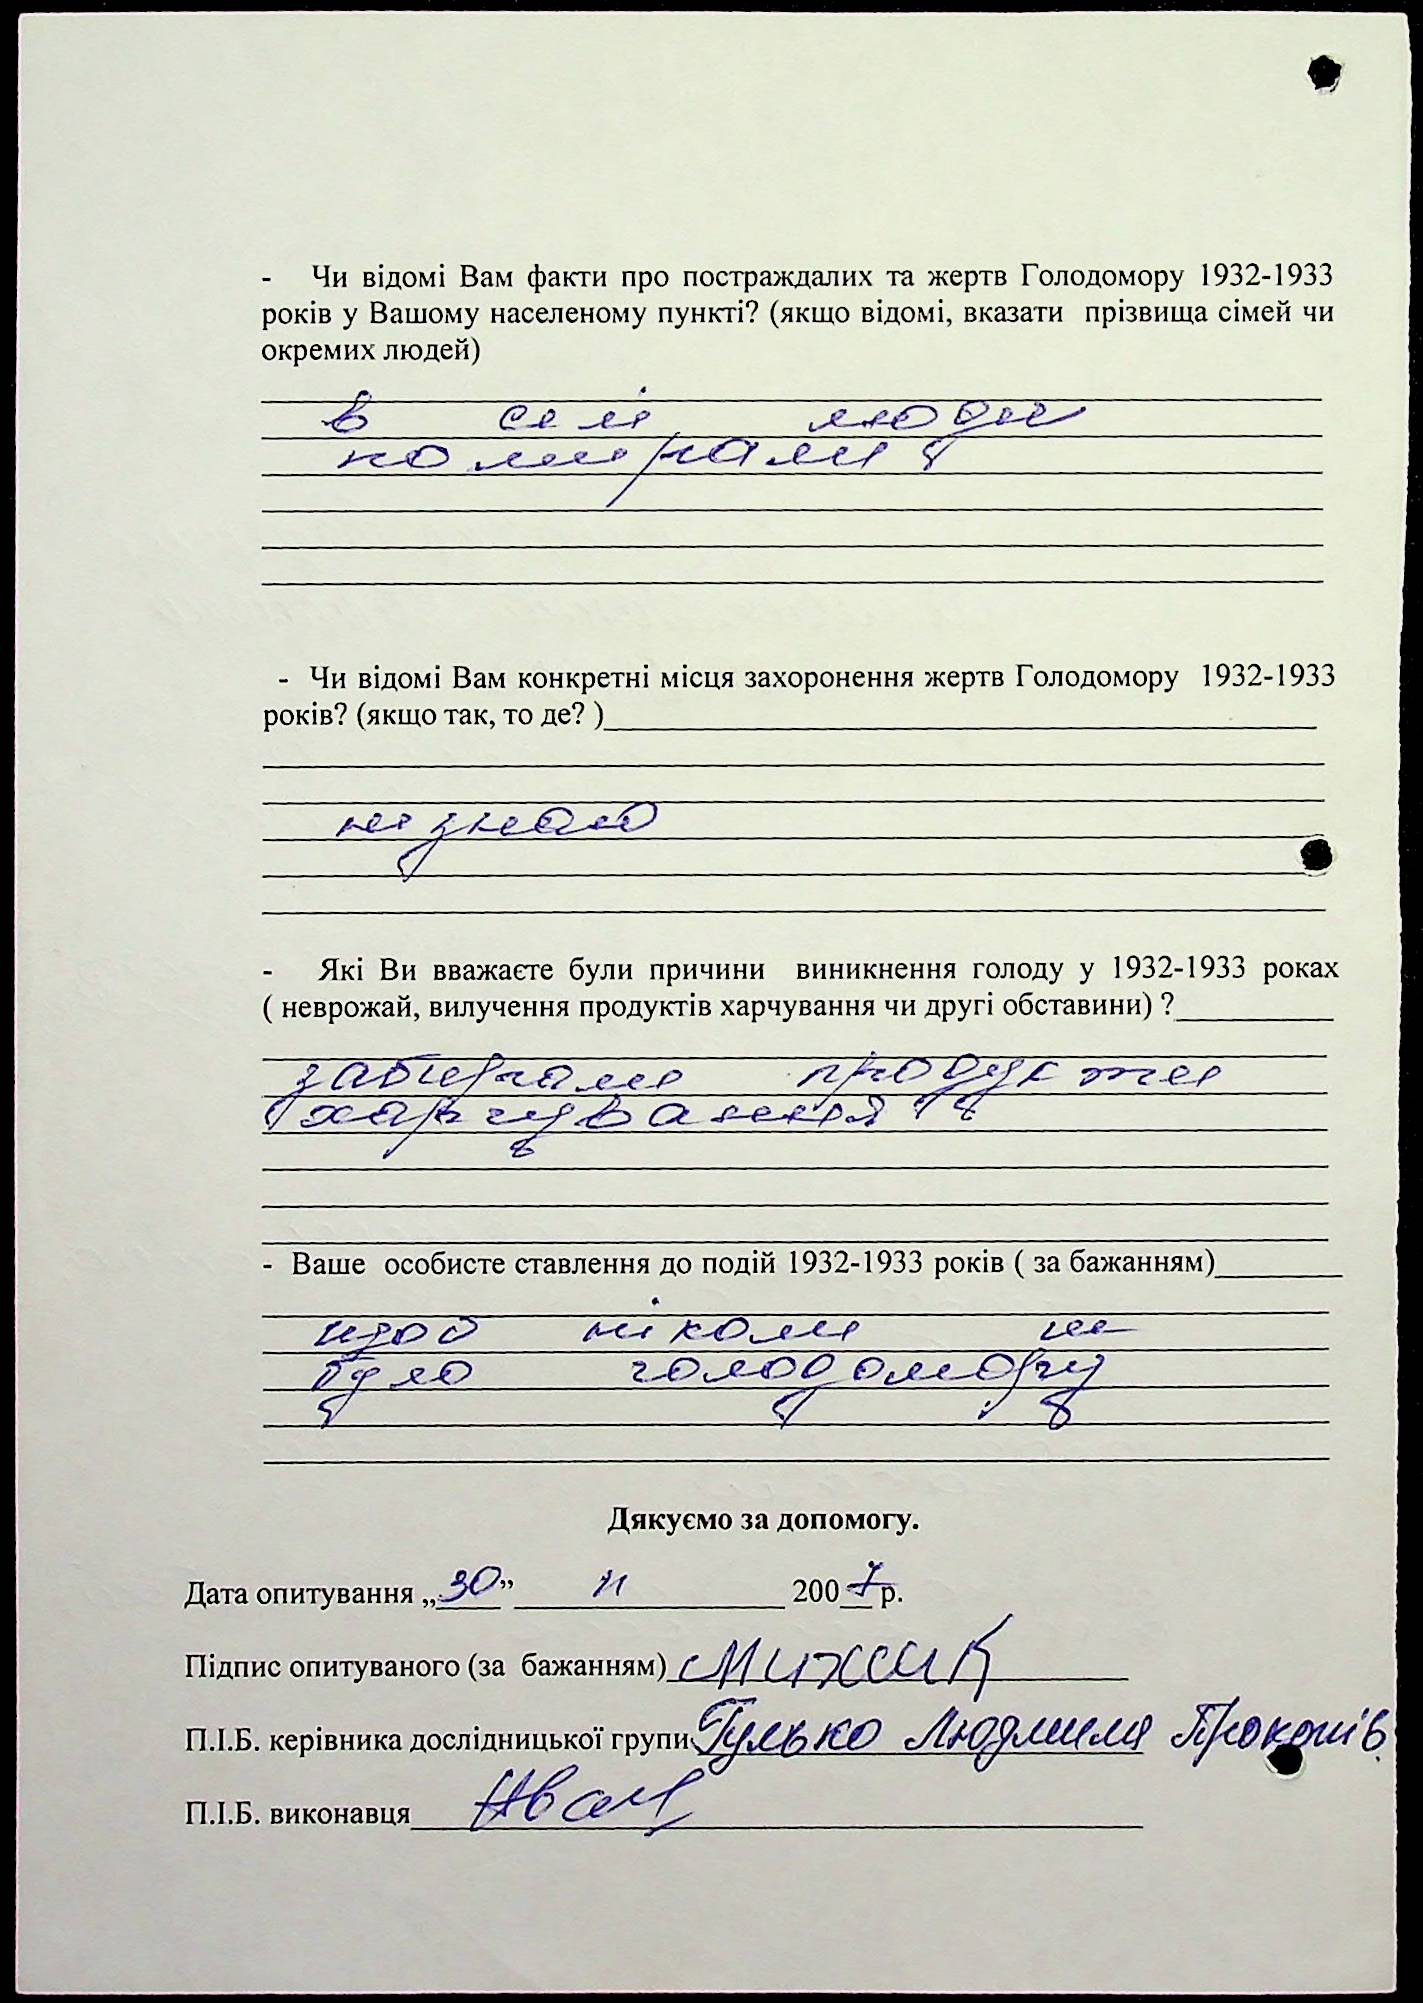 - Чи відомі Вам факти про постраждалих та жертв Голодомору 1932-1933
років у Вашому населеному пункті? (якщо відомі, вказати прізвища сімей чи
окремих людей)
в селі люди
помирали
- Чи відомі Вам конкретні місця захоронення жертв Голодомору 1932-1933
років? (якщо так, то де? )
не знаю
- Які Ви вважаєте були причини виникнення голоду у 1932-1933 роках
( неврожай, вилучення продуктів харчування чи другі обставини) ?
забирали продукти
харчування
- Ваше особисте ставлення до подій 1932-1933 років ( за бажанням)
щоб ніколи не
було голодомору
Дякуємо за допомогу.
Дата опитування „30” 11 2007 р.
Підпис опитуваного (за бажанням)
П.І.Б. керівника дослідницької групи Гулько Людмила Прокопів
П.І.Б. виконавця